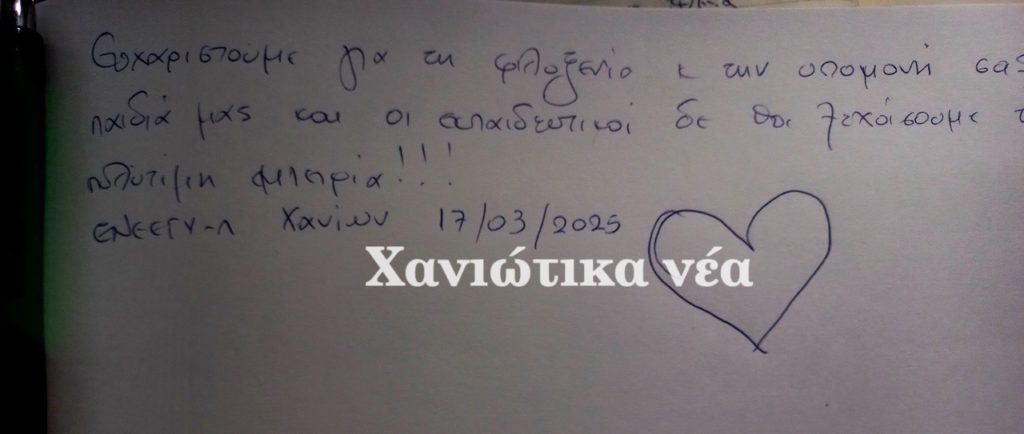 Ευχαριστούμε για τη φιλοξενία κ την υπομονή σας
παιδιά μας και οι εκπαιδευτικοί δε θα ξεχάσουμε τ
πολύτιμη εμπειρία!!!
ΕΝΕΕΓΥ-Λ Χανίων 17/03/2025
Χανιώτικα νέα